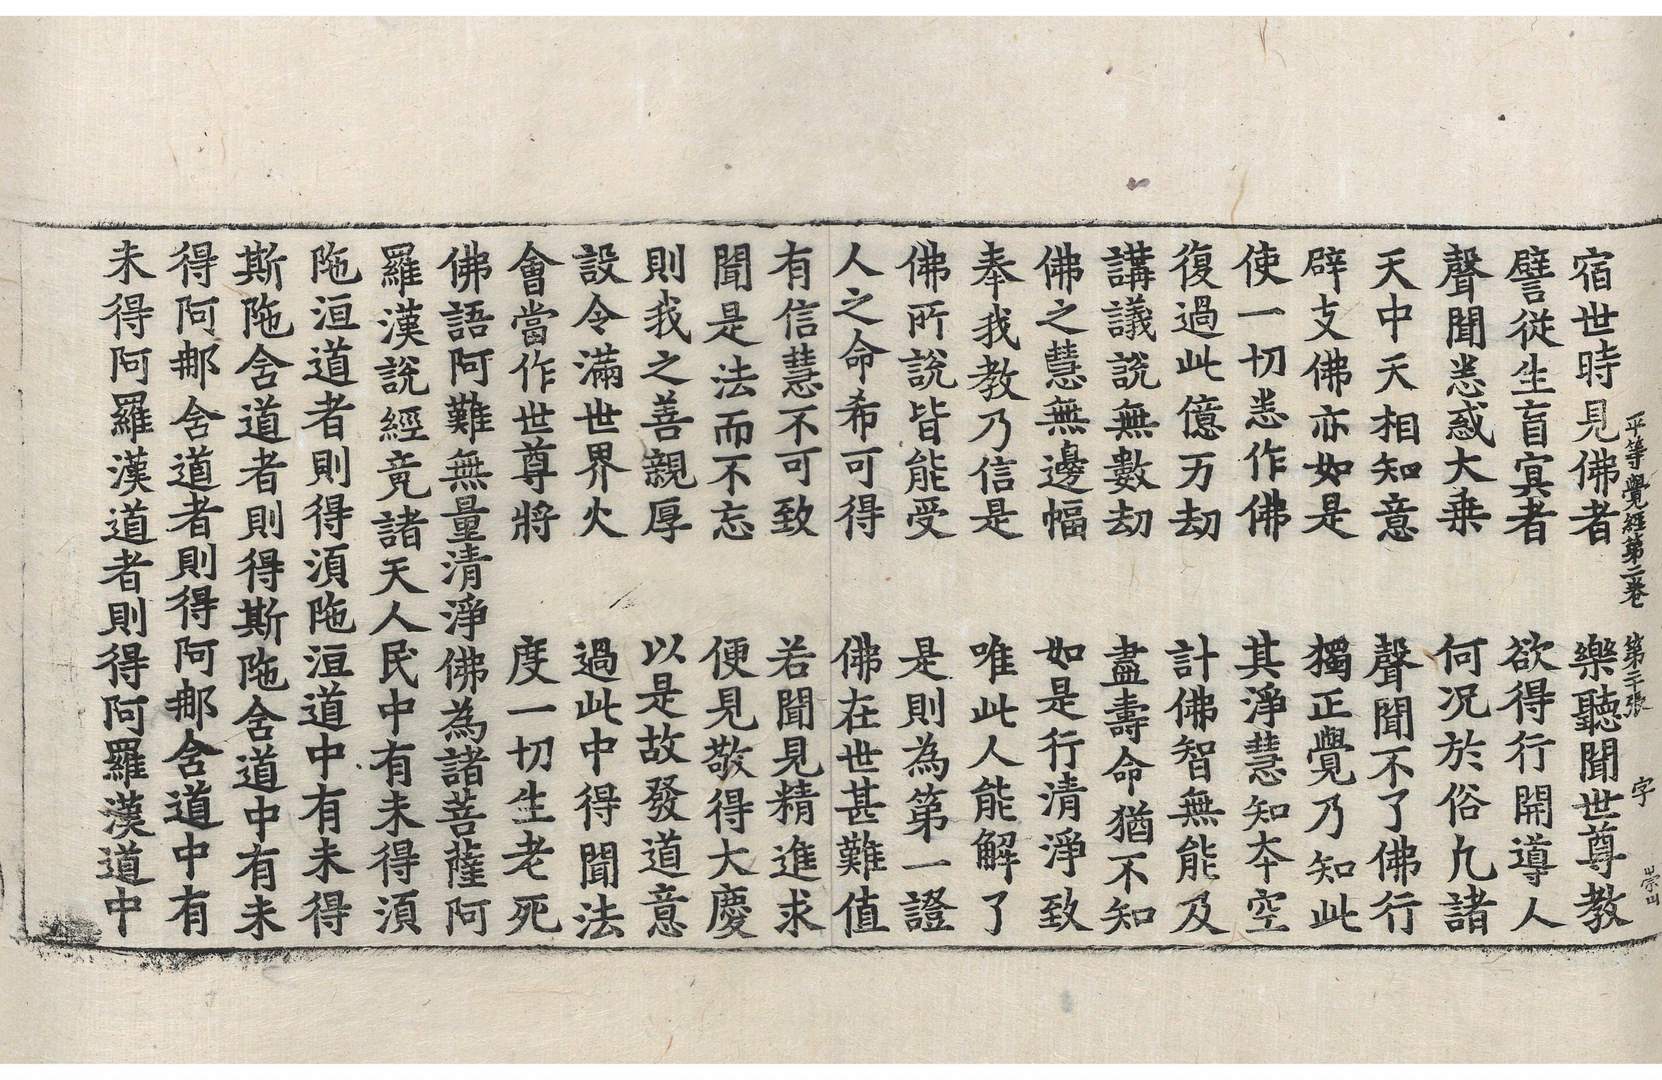 平等覺經第二卷　第二十張　字　崇山
宿世時見佛者　樂聽聞世尊教
譬從生盲㝠者　欲得行開導人
聲聞悉惑大乗　何况於俗凢諸
天中天相知意　聲聞不了佛行
辟支佛亦如是　獨正覺乃知此
使一切悉作佛　其淨慧知夲空
復過此億万劫　計佛智無能及
講議說無數劫　盡壽命猶不知
佛之慧無邊幅　如是行清淨致
奉我教乃信是　唯此人能解了
佛所說皆能受　是則為第一證
人之命希可得　佛在世甚難值
有信慧不可致　若聞見精進求
聞是法而不忘　便見敬得大慶
則我之善親厚　以是故發道意
設令滿世界火　過此中得聞法
會當作世尊將　度一切生老死
佛語阿難無量清淨佛為諸菩薩阿
羅漢說經竟諸天人民中有未得湏
陁洹道者則得湏陁洹道中有未得
斯陁含道者則得斯陁含道中有未
得阿那含道者則得阿那含道中有
未得阿羅漢道者則得阿羅漢道中